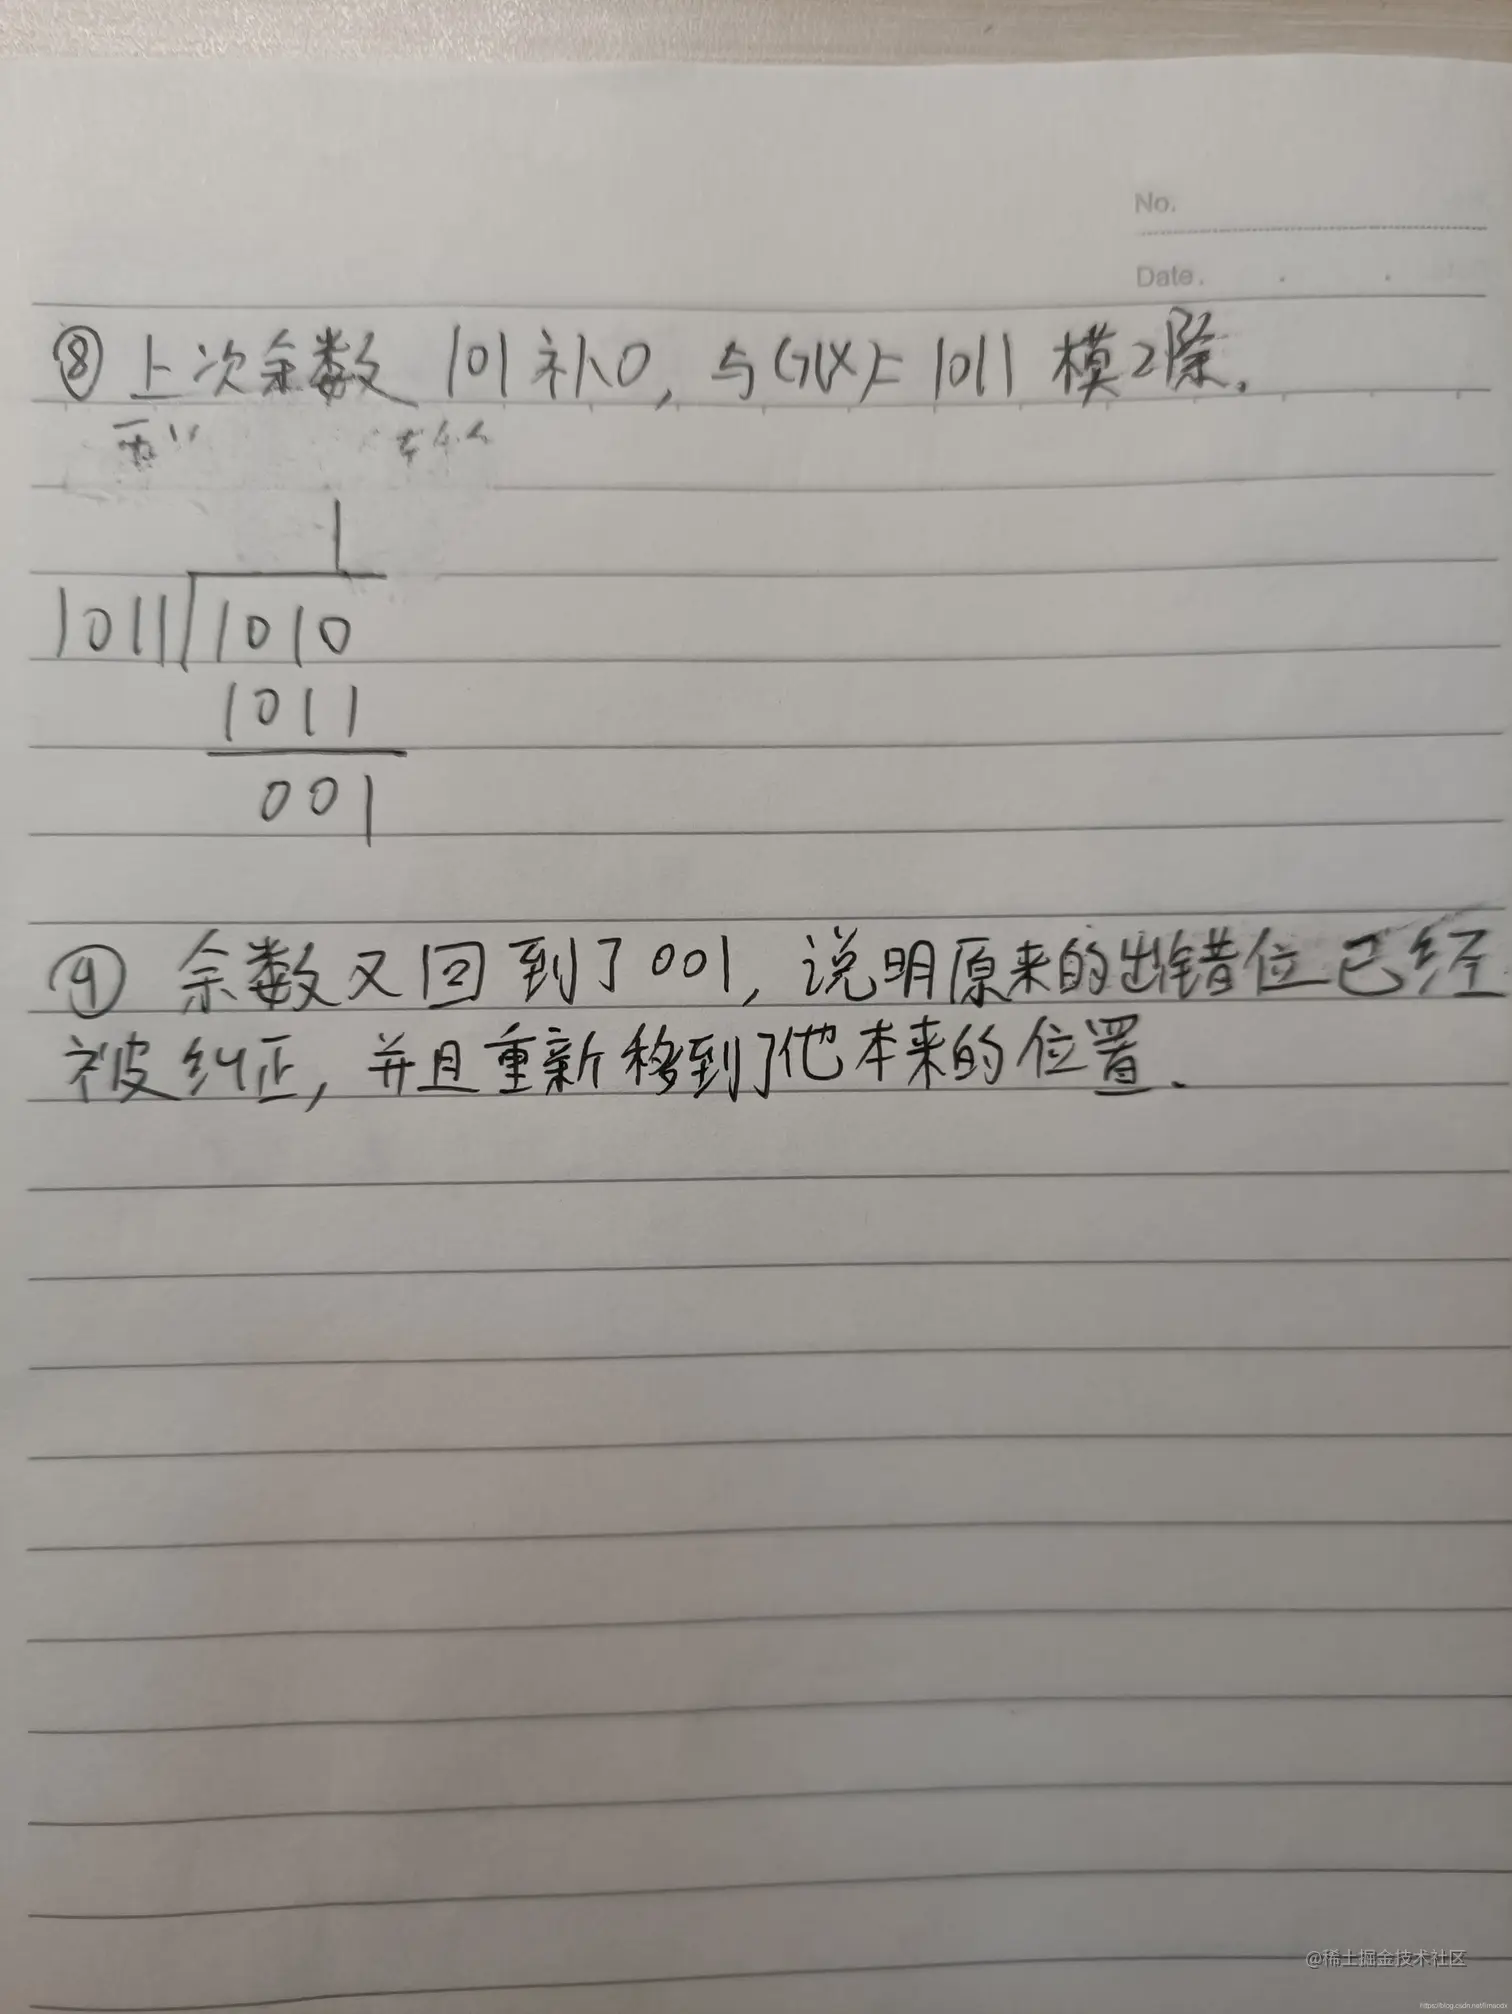 No.
Date.
⑧ 上次余数 101补0, 与G(X)=1011 模2除.
1
1011 1010
1011
001
⑨ 余数又回到了001, 说明原来的出错位已经
被纠正, 并且重新移到了他本来的位置.
@稀土掘金技术社区